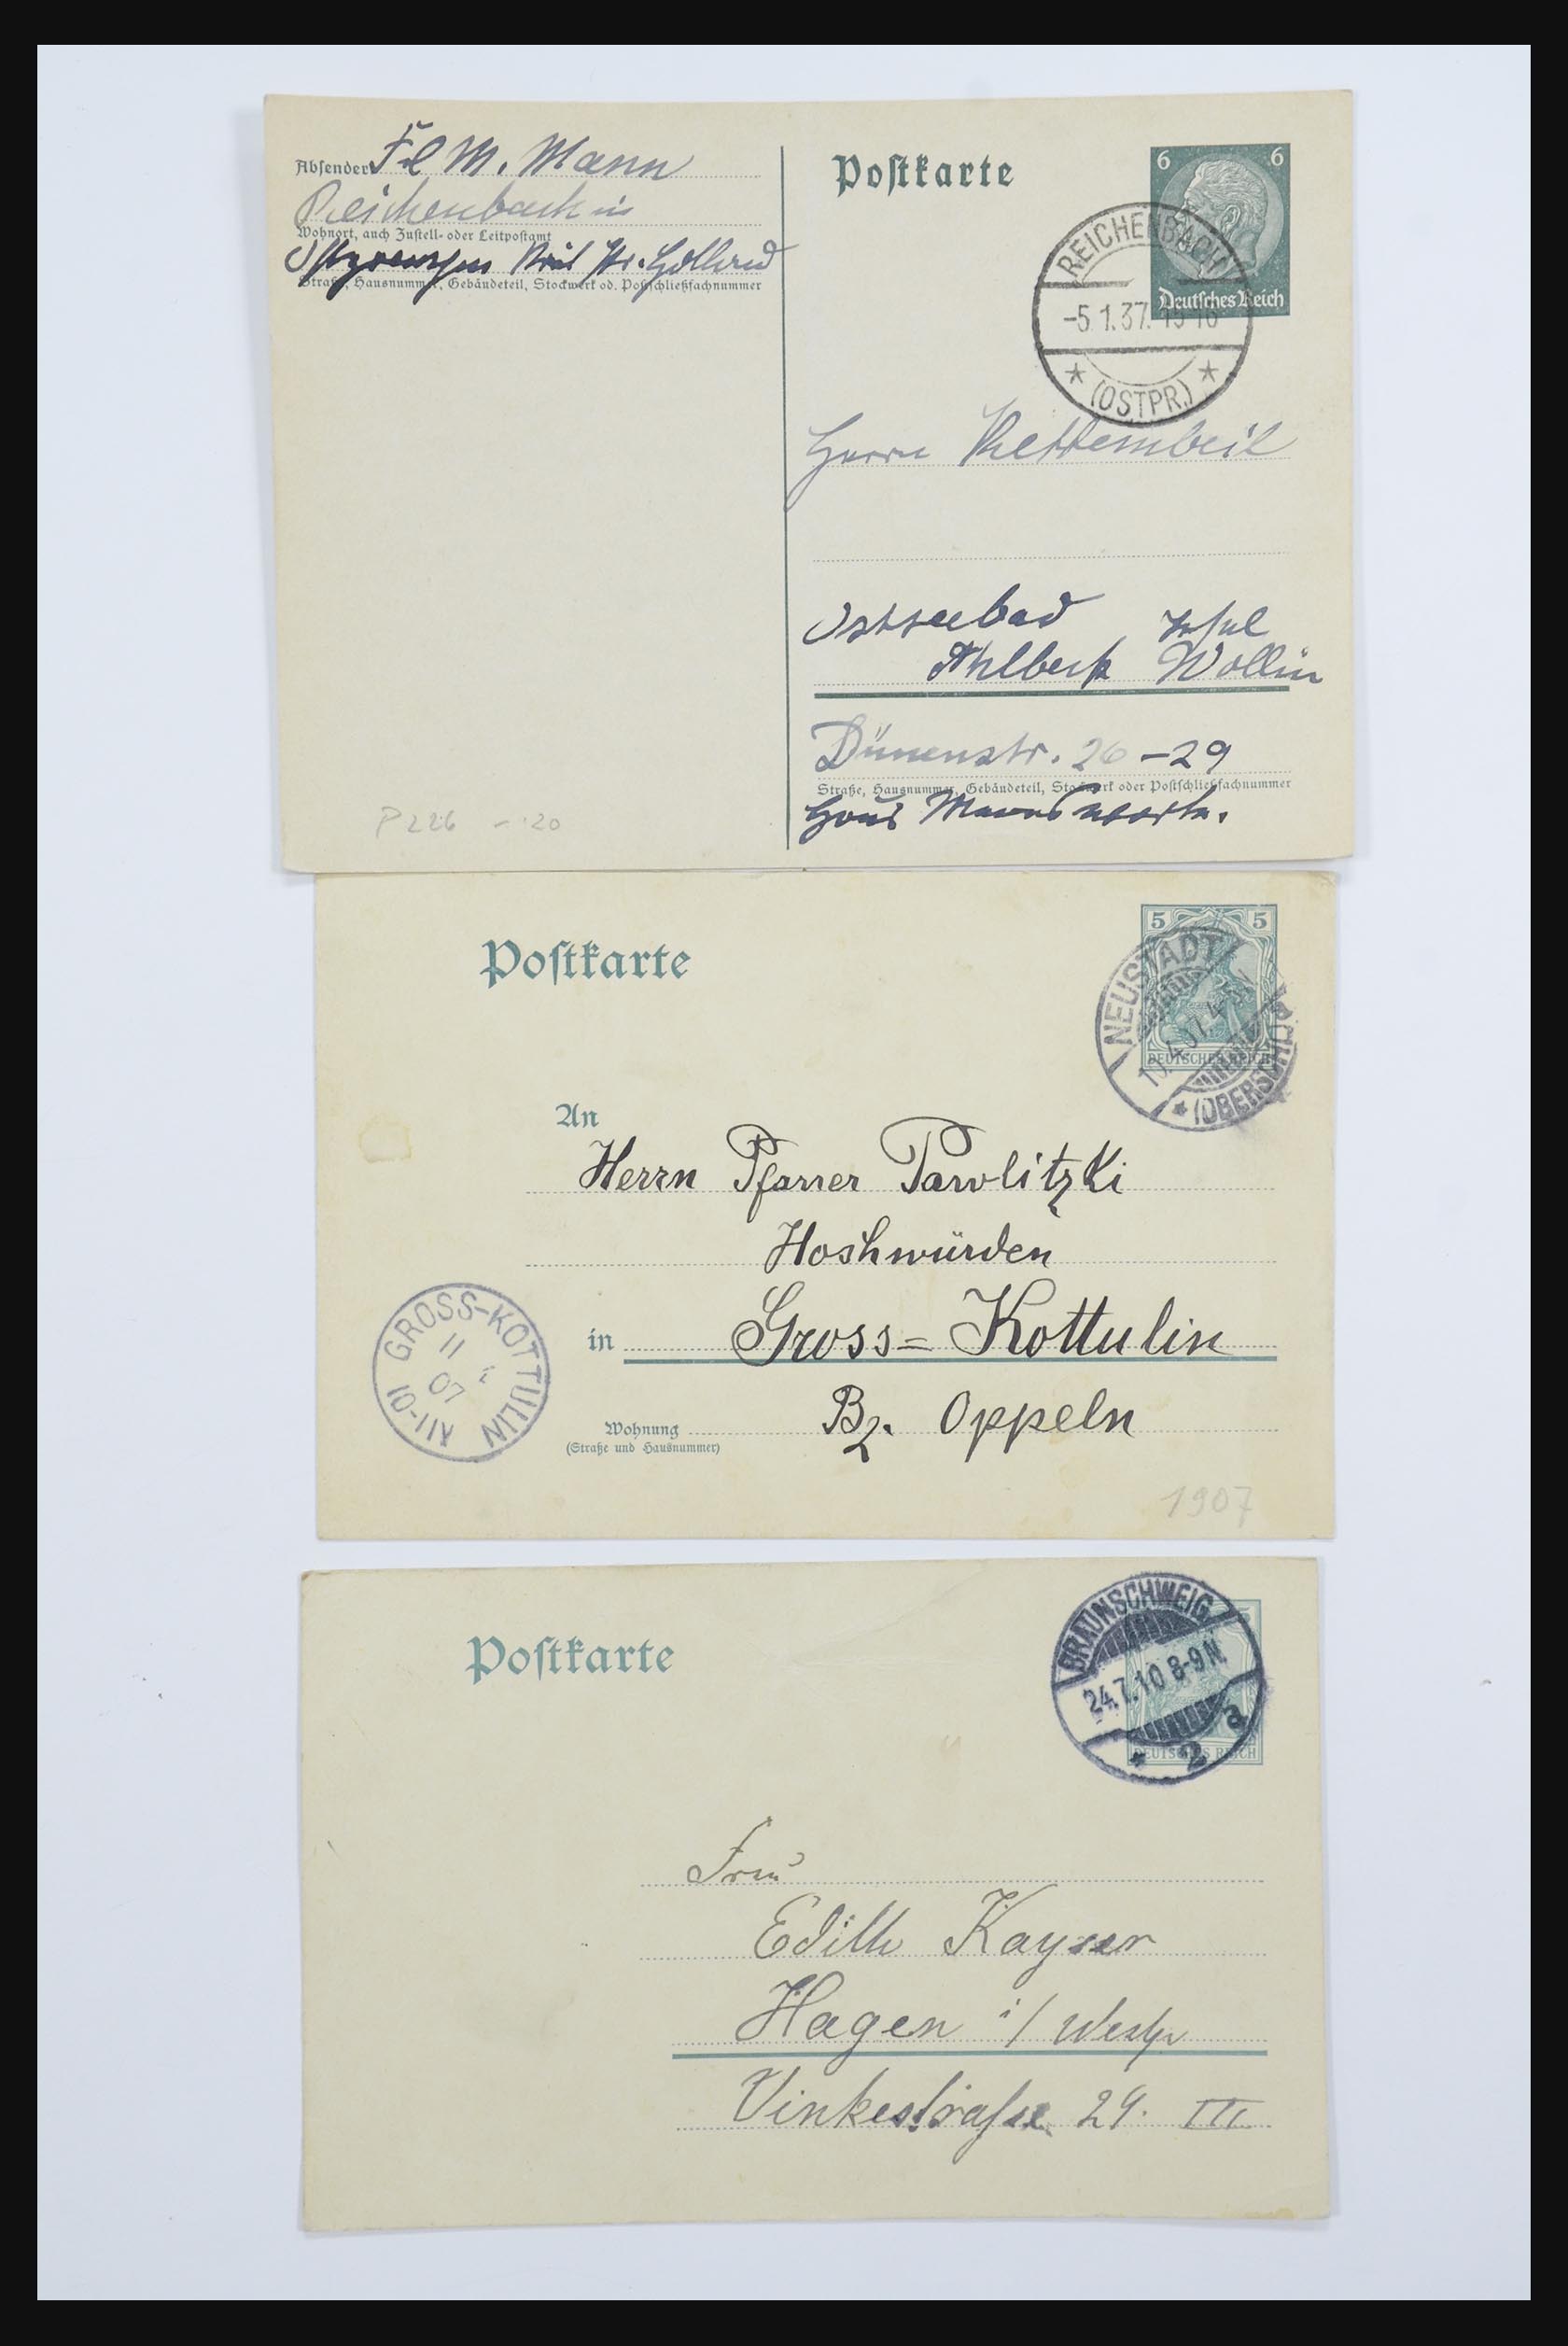 Absender Frl M. Mann
Reichenbach in
Wohnort, auch Zustell- oder Leitpostamt
Ostpreussen Kreis Pr. Holland
Straße, Hausnummer, Gebäudeteil, Stockwerk od. Postschließfachnummer
P226 -.20
Postkarte
6 6
Deutsches Reich
REICHENBACH
-5.1.37. 15-16
(OSTPR.)
Herrn Kettembeil
Ostseebad Insel
Ahlbeck Wollin
Dünenstr. 26-29
Straße, Hausnummer, Gebäudeteil, Stockwerk oder Postschließfachnummer
Haus
Postkarte
5 5
DEUTSCHES REICH
NEUSTADT
(OBERSCHL
An
Herrn Pfarrer Pawlitzki
Hochwürden
in Gross=Kottulin
Bz. Oppeln
Wohnung
(Straße und Hausnummer)
GROSS-KOTTULIN
11
07
10-11V
1907
Postkarte
5
DEUTSCHES REICH
BRAUNSCHWEIG
24.7.10 8-9N
* 2 a
Frau
Edith Kayser
Hagen i/ Westf
Vinkestraße 24. III.